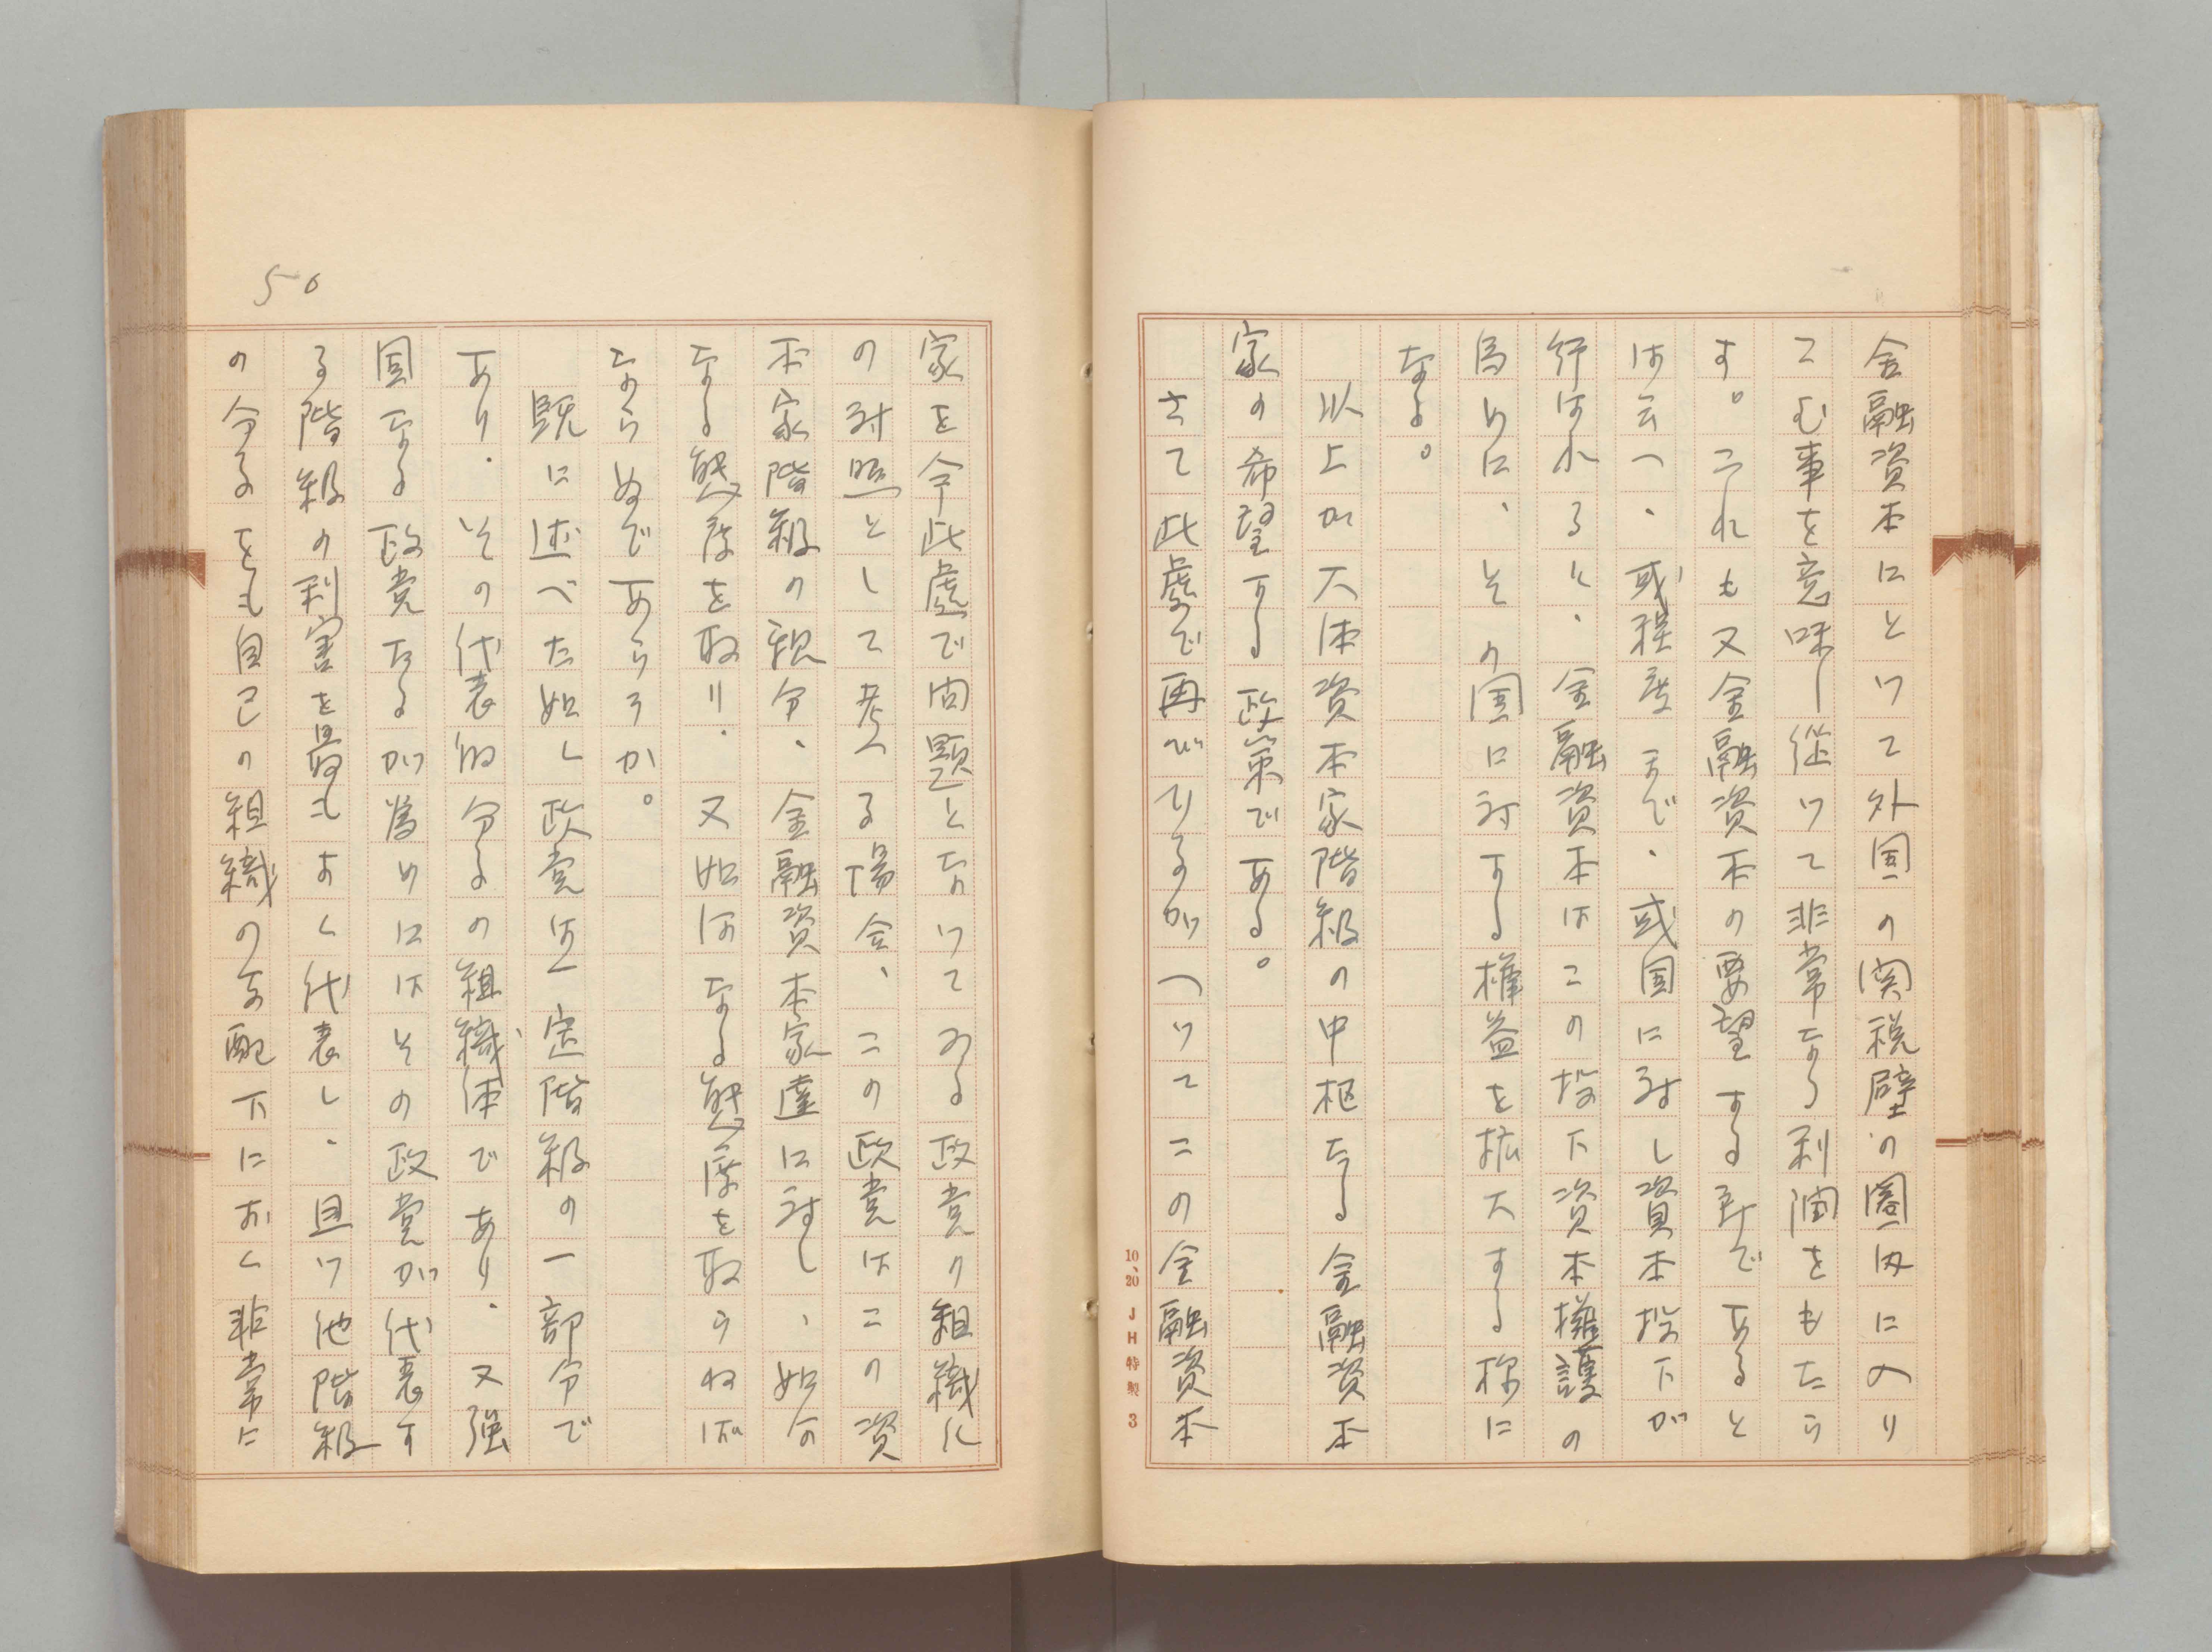 金融資本にとつて外国の関税壁の圏内に入り
こむ事を意味し従つて非常なる利潤をもたら
す。これも又金融資本の要望する所であると
は云へ、或程度まで、或国に対し資本投下が
行はれると、金融資本はこの投下資本擁護の
為めに、その国に対する権益を拡大する様に
なる。
以上が大体資本家階級の中枢たる金融資本
家の希望する政策である。
さて此處で再びひるがへつてこの金融資本
10、20 JH特製 3
50
家を今此處で問題となつてゐる政党の組織に
の対照として考へる場合、この政党はこの資
本家階級の親分、金融資本家達に対し、如何
なる態度を取り、又如何なる態度を取らねば
ならぬであらうか。
既に述べた如く政党は一定階級の一部分で
あり、その代表的分子の組織体であり、又強
固なる政党たるが為めにはその政党が代表す
る階級の利害を最もよく代表し、且つ他階級
の分子をも自己の組織の支配下におく非常に